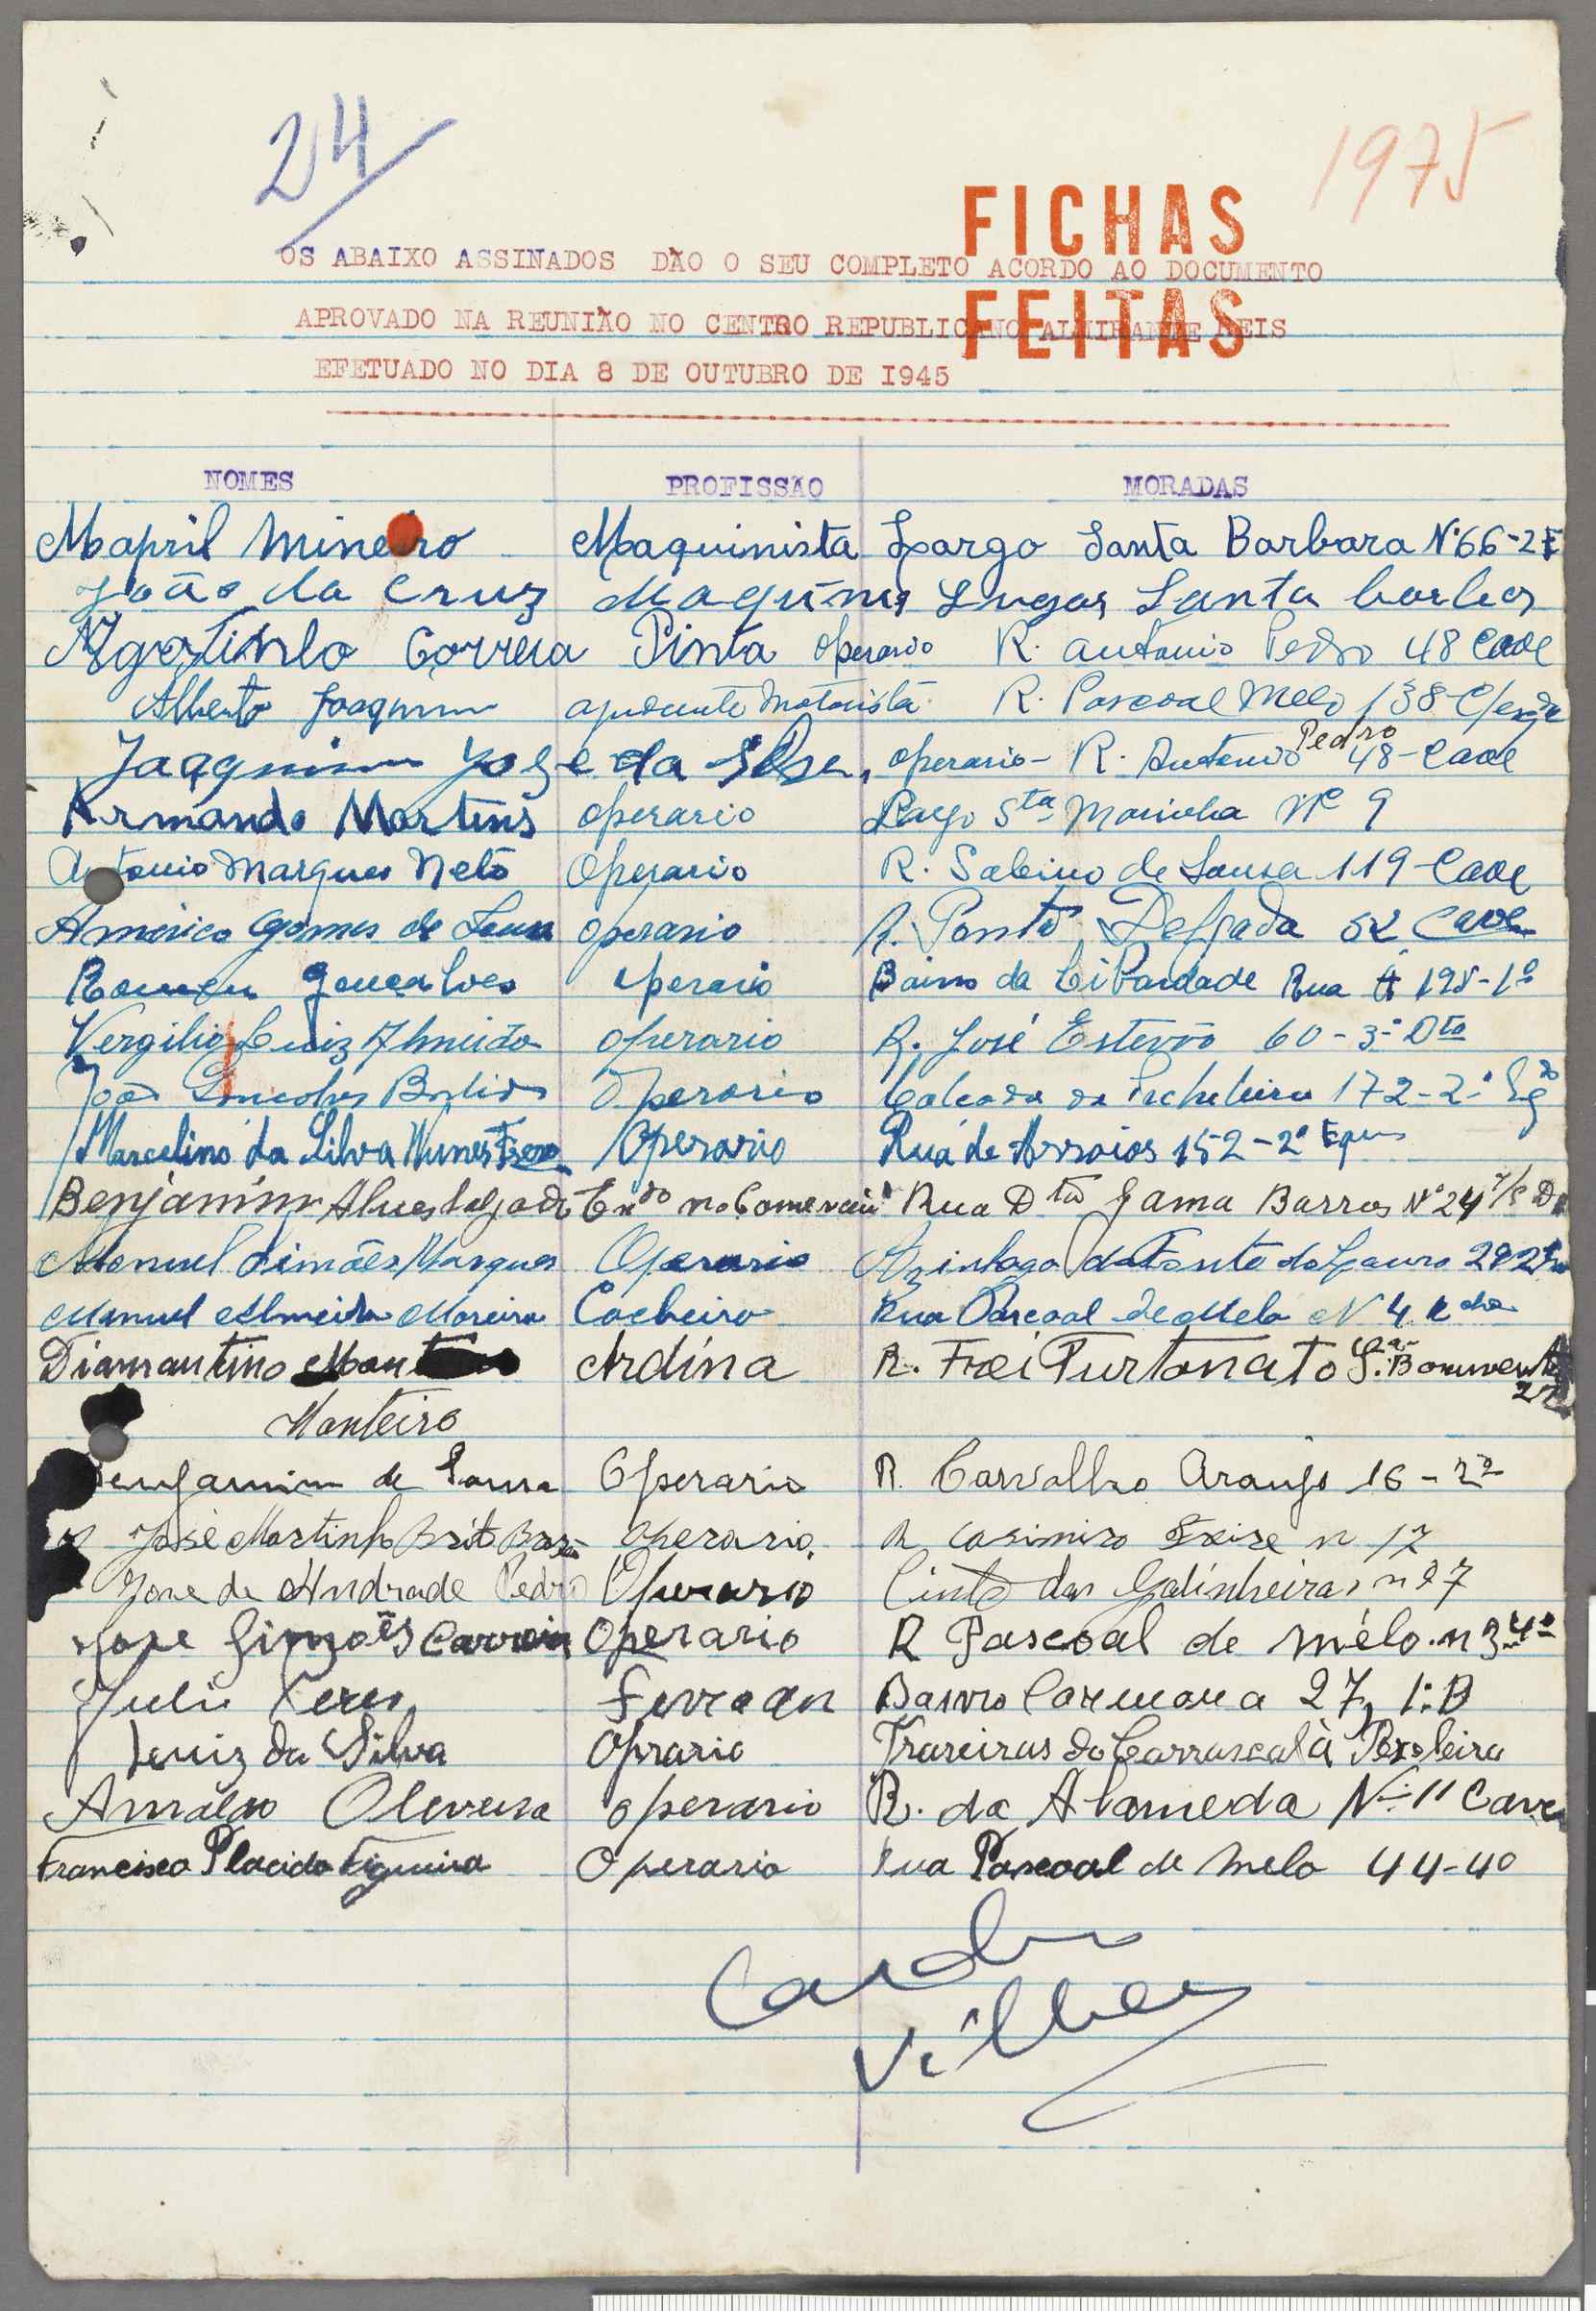 24
1975
FICHAS
OS ABAIXO ASSINADOS DÃO O SEU COMPLETO ACORDO AO DOCUMENTO
FEITAS
APROVADO NA REUNIÃO NO CENTRO REPUBLICANO ALMIRANTE REIS
EFETUADO NO DIA 8 DE OUTUBRO DE I945
NOMES PROFISSÃO MORADAS
Mapril Mineiro Maquinista Largo Santa Barbara Nº 66-2E
João da Cruz Santa
Correia Pinta operario R. Antonio Pedro 48 Cave
Alberto Joaquim ajudante motorista R. Pascoal Melo 138
Joaquim Jose da operario - R. Antonio Pedro 48-Cave
Armando Martins operario Largo Sta Marinha Nº 9
Antonio Marques Neto Operario R. Sabino de Sousa 119-Cave
Americo Gomes de operario R. Ponta Delgada 52 Cave
Romeu Gonçalves operario Bairro da Rua A 198-1º
Vergilio Luiz Almeida operario R. José Estevão 60-3º Dto
João Operario Calçada da Picheleira 172-2º Eqdo
Marcelino da Silva Nunes Operario Rua de Arroios 152-2º
Benjamim Alves Salgado no Comercio Rua Gama Barros Nº 24
Manuel Simões Marques Operario Azinhaga da Fonte do Louro
Manuel Almeida Moreira Cocheiro Rua Pascoal de Melo N 4
Diamantino Ardina R. Frei
Monteiro
Benjamim de Sousa Operario R. Carvalho Araujo 16-2º
José Martinho Brito operario R Casimiro Freire n 17
Jose de Andrade Pedro Operario das Galinheiras n 27
Jose Simões Correia Operario R Pascoal de Mélo n 34
Bairro Carmona 27, 1º B
Luiz da Silva Oprario Traseiras do Carrascal à
Arnaldo Oliveira operario R. da Alameda Nº 11 Cave
Francisco Placido Figueira Operario Rua Pascoal de Melo 44-4º